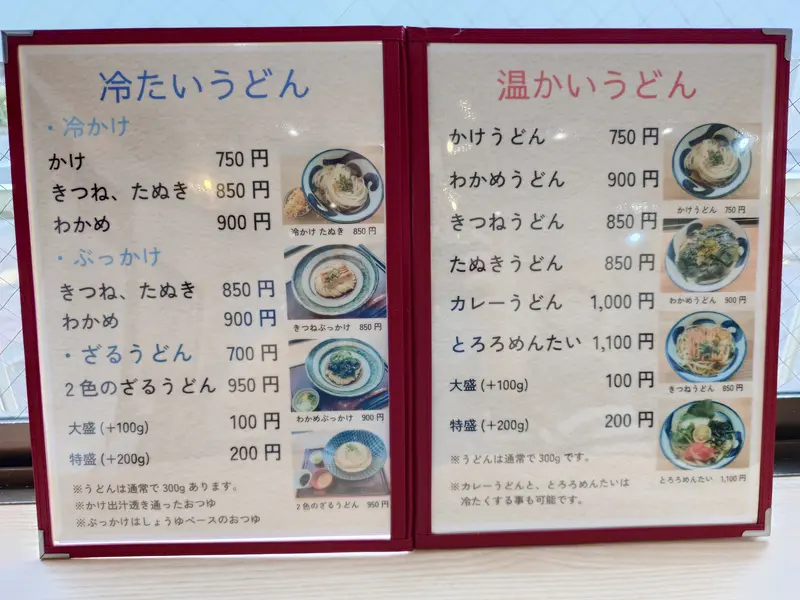 冷たいうどん
・冷かけ
かけ 750円
きつね、たぬき 850円
わかめ 900円
冷かけ たぬき 850円
・ぶっかけ
きつね、たぬき 850円
わかめ 900円
きつねぶっかけ 850円
・ざるうどん 700円
2色のざるうどん 950円
わかめぶっかけ 900円
大盛(+100g) 100円
特盛(+200g) 200円
2色のざるうどん 950円
※うどんは通常で300gあります。
※かけ出汁透き通ったおつゆ
※ぶっかけはしょうゆベースのおつゆ
温かいうどん
かけうどん 750円
かけうどん 750円
わかめうどん 900円
きつねうどん 850円
たぬきうどん 850円
わかめうどん 900円
カレーうどん 1,000円
とろろめんたい 1,100円
大盛(+100g) 100円
きつねうどん 850円
特盛(+200g) 200円
※うどんは通常で300gです。
※カレーうどんと、とろろめんたいは
冷たくする事も可能です。
とろろめんたい 1,100円